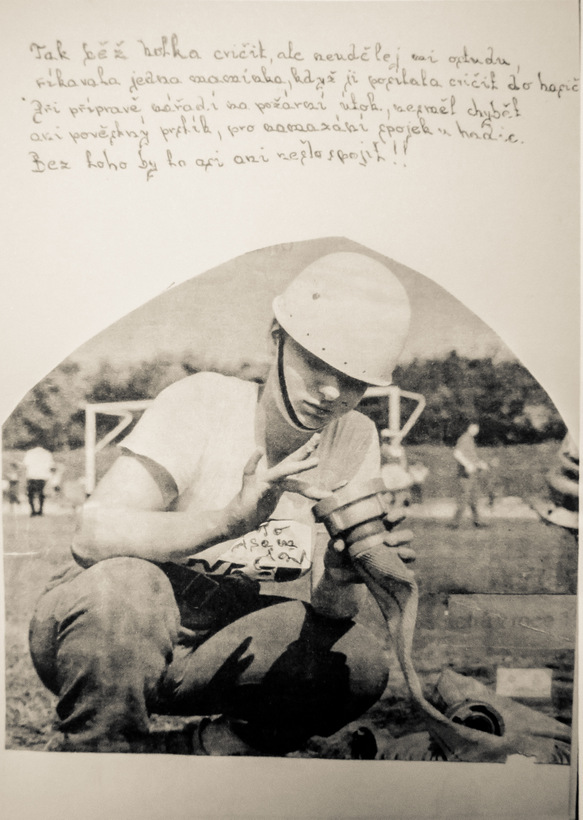 Tak běž holka cvičit, ale neudělej mi ostudu,
říkavala jedna maminka, když ji posílala cvičit do hasič
Při přípravě nářadí na požární útok, nesměl chybět
ani pověstný prstík, pro namazání spojek u hadic.
Bez toho by to asi ani nešlo spojit!!
To